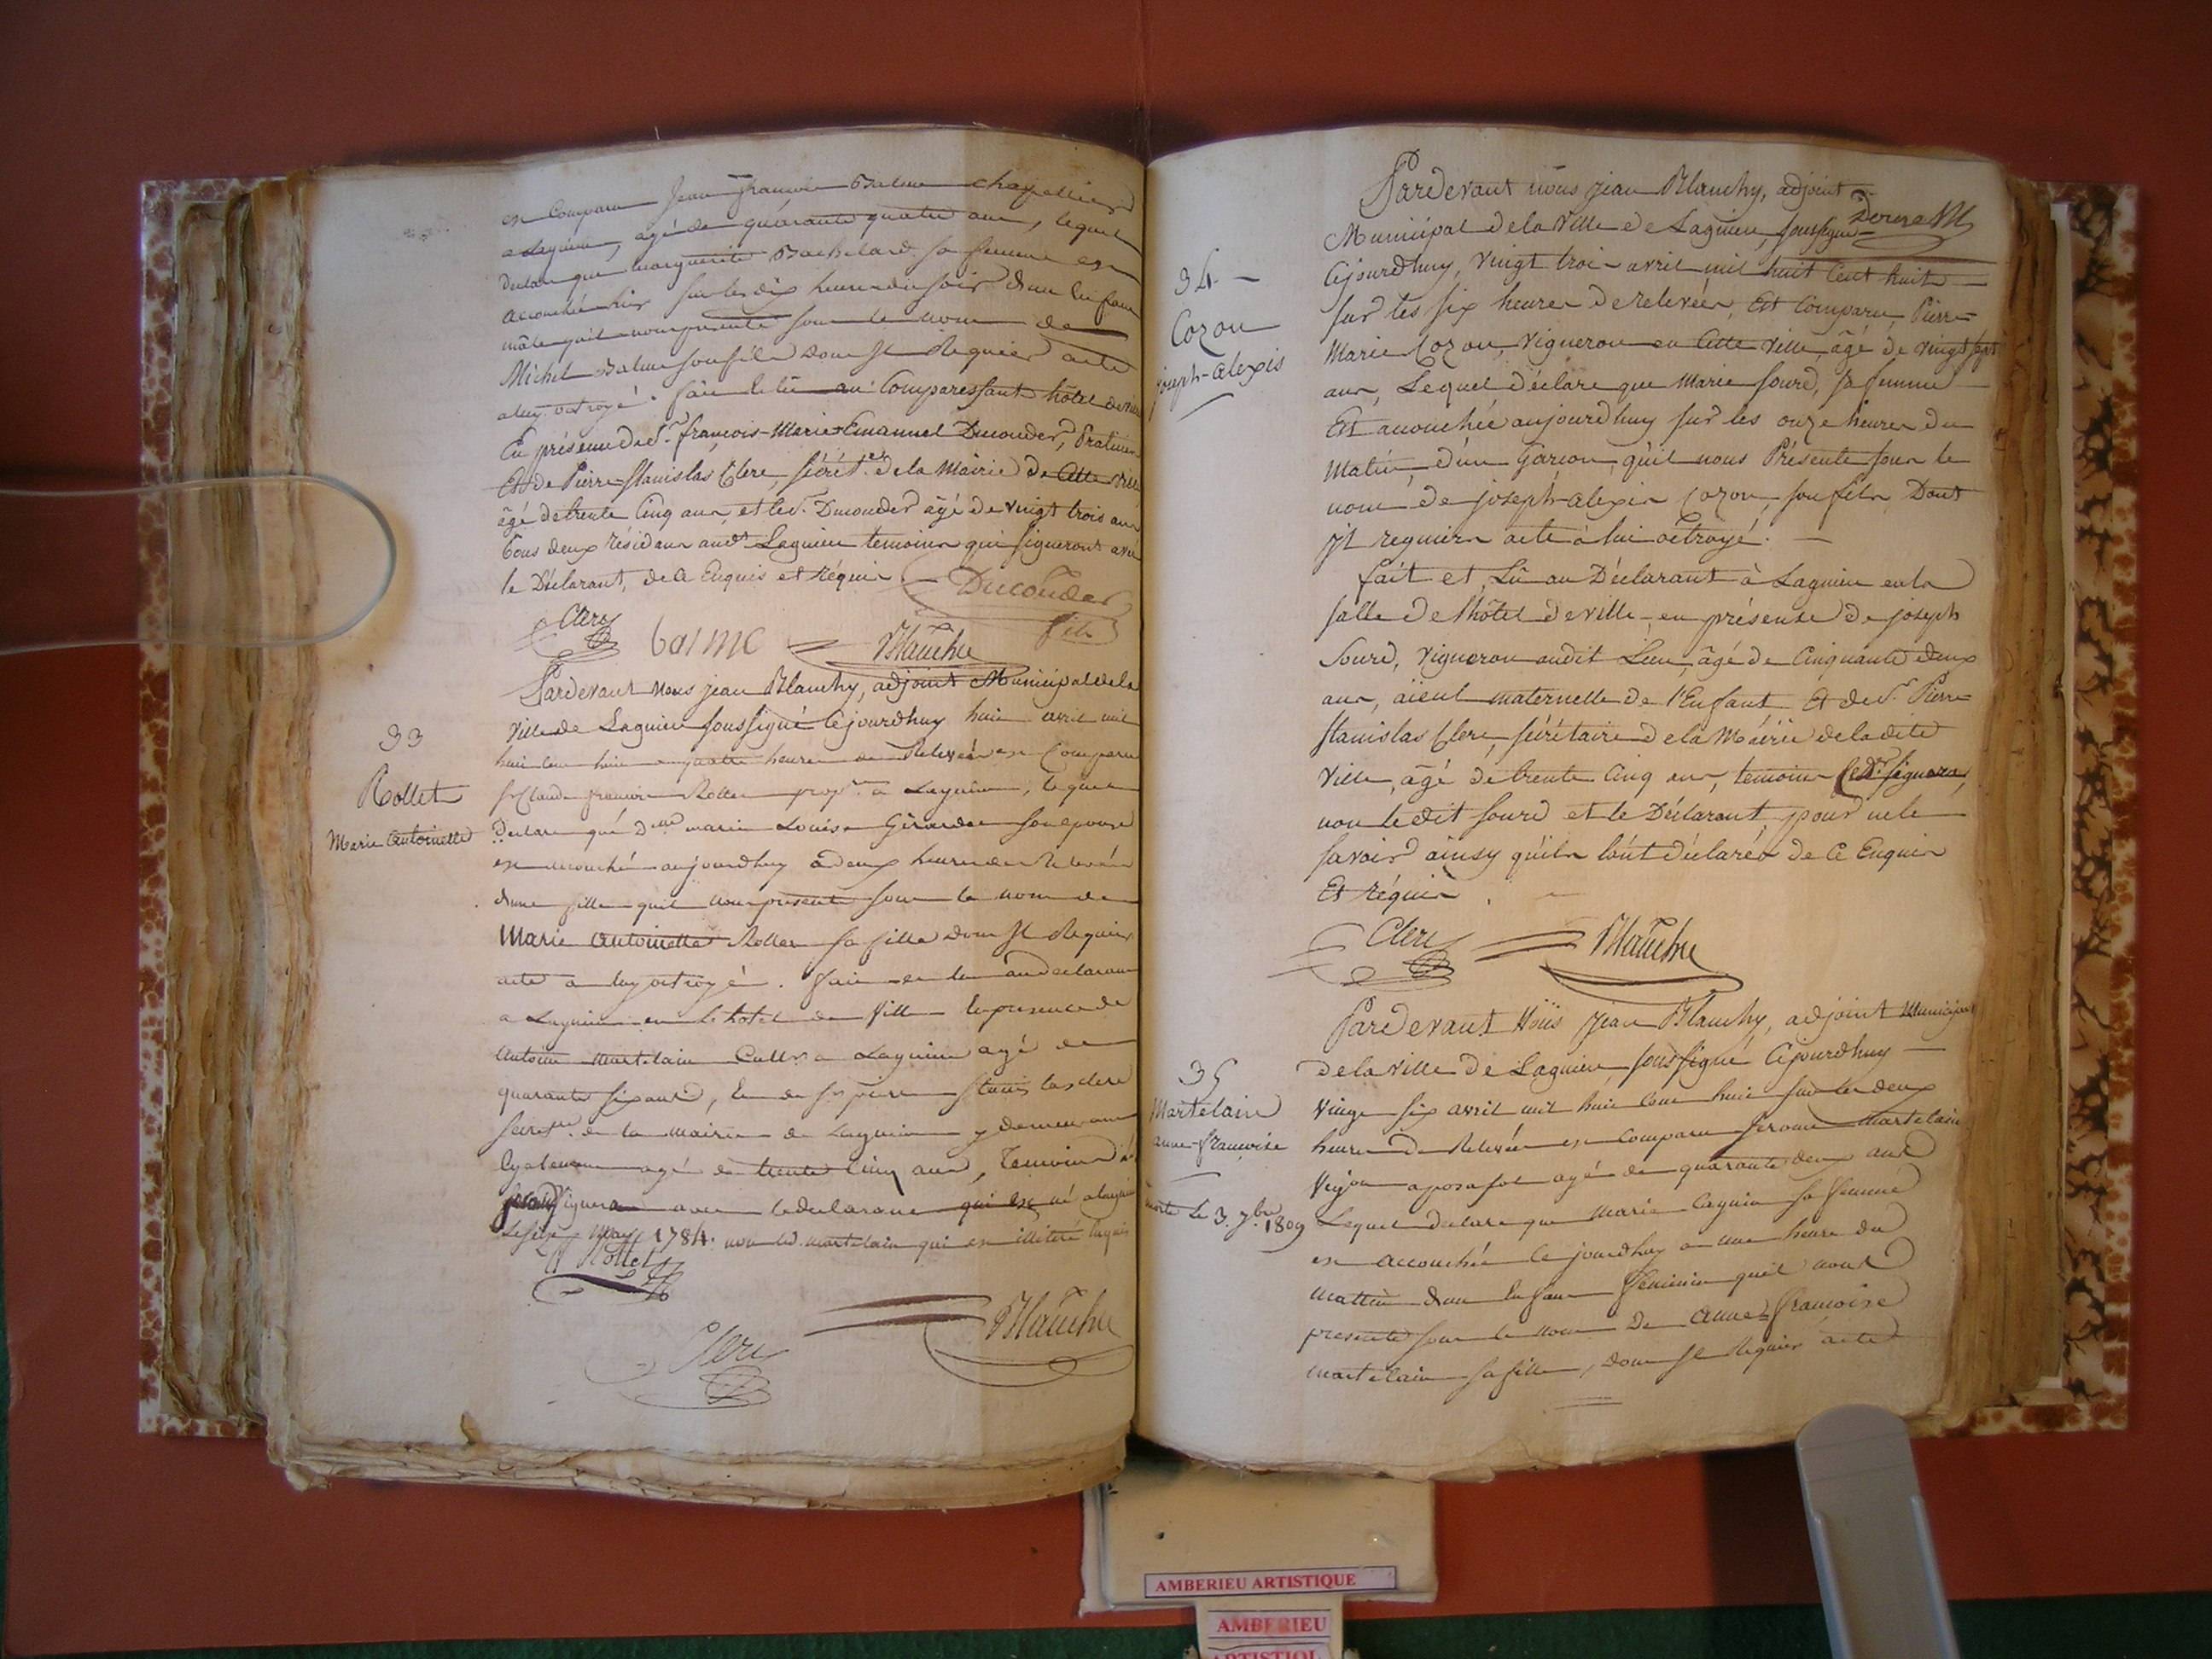 est Comparu Jean françois Balme chapellier
a Lagnieu, agé de quarante quatre ans, lequel
Declare que marguerite Bachelard sa femme est
accouchée hier sur les dix heures du soir d'un Enfant
mâle qu'il nous presente sous le nom de
Michel Balme son fils Dont Il Requier acte
a luy octroyé. fait et lû au Comparessant hôtel de ville
En présence de Sr. françois-Marie-Emanuel Ducouder, Praticien
Et de Pierre-Stanislas Clerc, sécrét.re de la Mairie de Cette Ville
âgé de trente Cinq ans, et le Sr. Ducouder âgé de vingt trois ans
tous deux résidans aud.t Lagnieu temoins qui signeront avec
le Déclarant, de Ce Enquis et réquis
Ducouder
fils
Clerc
balme
Blanchy
Pardevant Nous jean Blanchy, adjoint Municipal de la
Ville de Lagnieu soussigné Cejourdhuy huit avril mil
huit Cent huit a quatre heures de Relevée est Comparu
33
Rollet
Marie Antoinette
Sr Claude françois Rollet prop.re a Lagnieu, lequel
Declare que D.me marie Louise Girardet son epouse
est accouchée aujourdhuy a deux heures de Relevée
d'une fille quil nous presente sous le nom de
Marie Antoinette Rollet sa fille Dont Il Requier
acte a luy octroyé. fait et lu au declarant
a Lagnieu en le hotel de Ville En presence de
Antoine Martelain Cult.r a Lagnieu agé de
quarante six ans, Et de Sr pierre Stanis las clerc
secret.re de la Mairie de Lagnieu y demeurant
Egalement agé de trente Cinq ans, Temoins
signera avec le declarant qui est né a Lagnieu
Le six May 1784. non led. martelain qui est illiteré Enquis
Rollet
Blanchy
Clerc
Pardevant nous jean Blanchy, adjoint
Municipal de la Ville de Lagnieu, soussigné
Cejourdhuy, vingt trois avril mil huit Cent huit
34
Cozon
joseph-alexis
sur les six heures de relevée, Est Comparu, Pierre-
Marie Cozon, vigneron en Cette ville, âgé de vingt sept
ans, Lequel déclare que Marie Sourd, sa femme
Est accouchée aujourdhuy sur les onze heures du
Matin, d'un Garçon, qu'il nous Présente sous le
nom de joseph-alexis Cozon, son fils, Dont
Il requiers acte à lui octroyé.
fait et Lû au Déclarant à Lagnieu en la
salle de l'hôtel de ville, en présence de joseph
Sourd, vigneron audit Lieu, âgé de Cinquante deux
ans, aieul maternelle de l'Enfant Et de Sr. Pierre
Stanislas Clerc, sécrétaire de la Mairie de ladite
Ville, âgé de trente Cinq ans, temoins signera,
non ledit Sourd et le Déclarant, pour ne le
savoir ainsy qu'ils l'ont déclarés de Ce Enquis
Et réquis
Clerc
Blanchy
Pardevant Nous Jean Blanchy, adjoint Municipal
de la Ville de Lagnieu soussigné Cejourdhuy
35
Martelain
anne-françoise
morte le 3. 7.bre 1809
vingt six avril mil huit Cent huit sur les deux
heures de Relevée est Comparu Jerome Martelain
agé de quarante deux ans
Lequel declare que Marie Cagnin sa femme
est accouchée Cejourdhuy a une heure du
mattin d'un Enfant feminin quil nous
presente sous le nom De Anne-francoise
Martelain sa fille, dont Il Requier acte
AMBERIEU ARTISTIQUE
AMBERIEU
ARTISTIQU